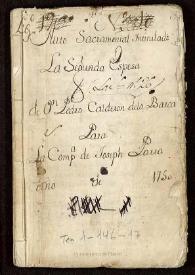 Auto Sacramental Yntitulado
La Segunda Esposa
de Dn. Pedro Calderon de la Barca
Para
La Compa. de Joseph Parra
año de 1750
Tea 1-142-17